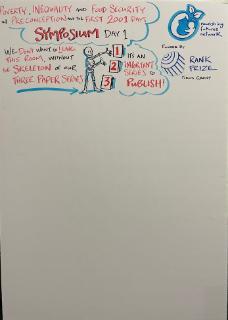 POVERTY, INEQUALITY AND FOOD SECURITY
IN PRECONCEPTION AND THE FIRST 2001 DAYS
SYMPOSIUM DAY 1
nourishing
futures
network
FUNDED BY
RANK
PRIZE
WE DON'T WANT TO LEAVE
THIS ROOM, WITHOUT
THE SKELETON OF OUR
THREE PAPER SERIES
1
2
3
IT'S AN
IMPORTANT
SERIES TO
PUBLISH!